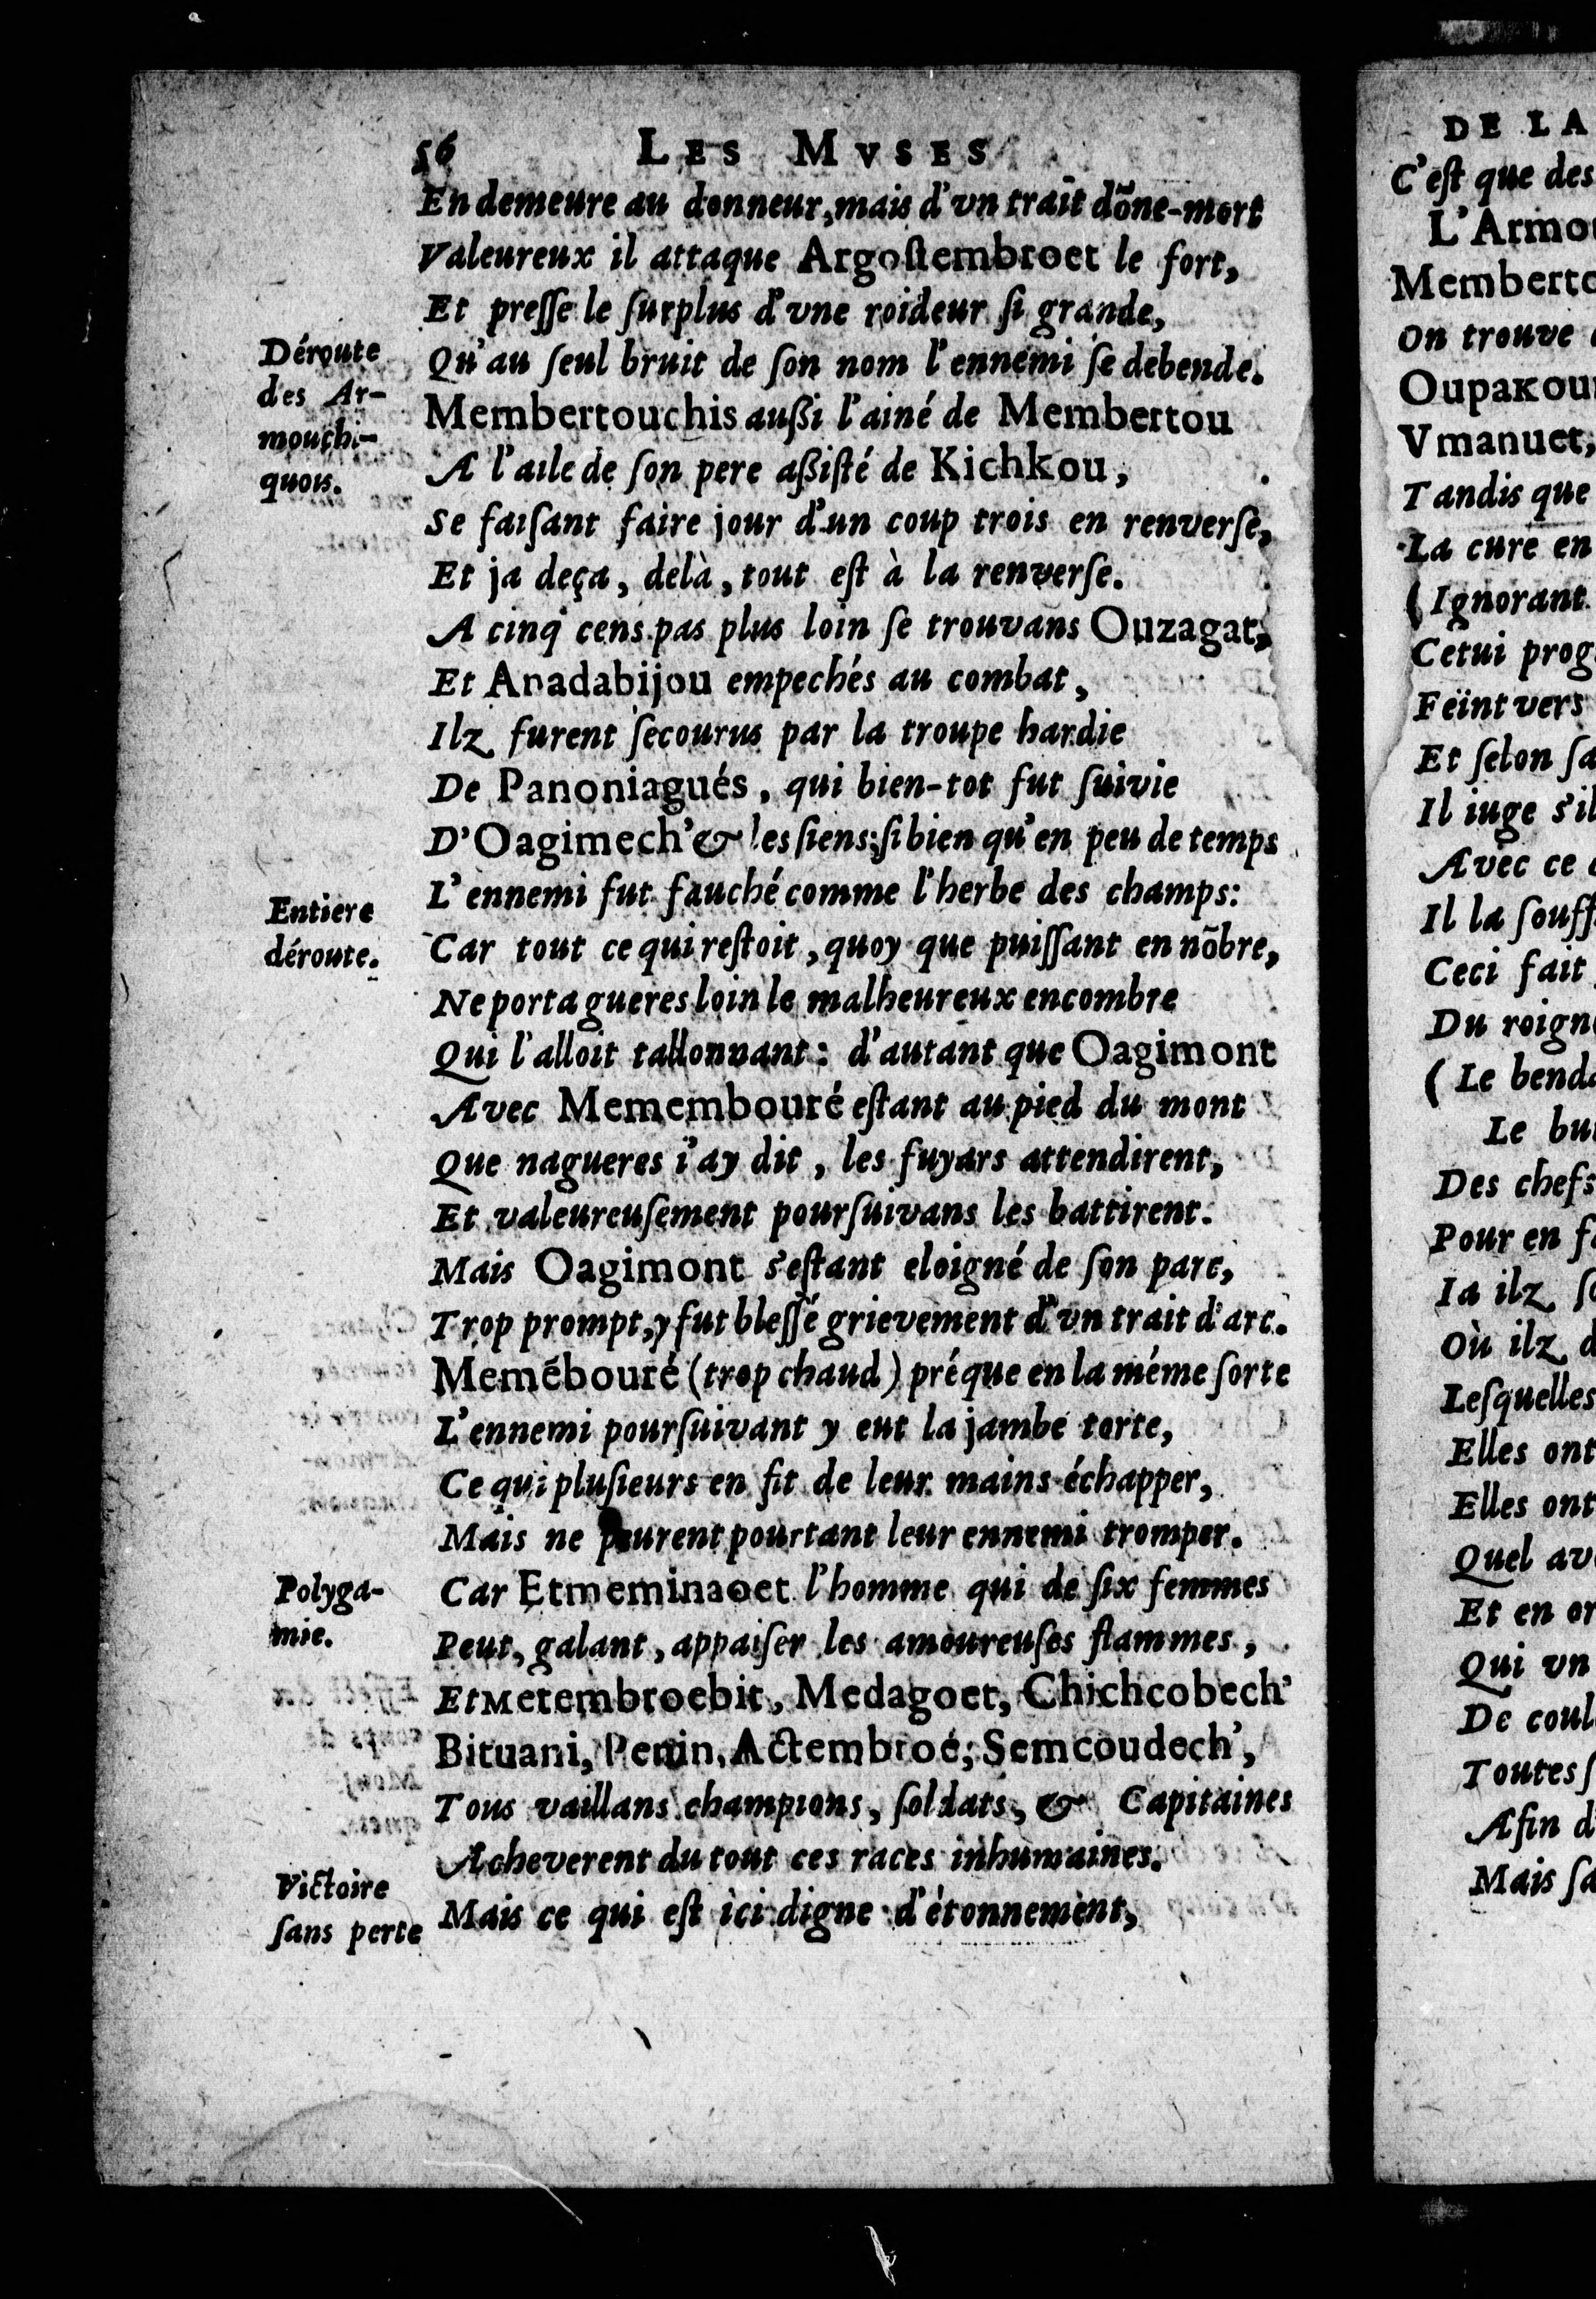 56 LES MVSES
En demeure au donneur, mais d'vn trait dõne-mort
Valeureux il attaque Argoſtembroet le fort,
Et preſſe le ſurplus d'vne roideur ſi grande,
Qu'au ſeul bruit de ſon nom l'ennemi ſe debende.
Membertouchis außi l'ainé de Membertou
A l'aile de ſon pere aßiſté de Kichkou,
Se faiſant faire jour d'un coup trois en renverſe,
Et ja deça, delà, tout eſt à la renverſe.
A cinq cens pas plus loin ſe trouvans Ouzagat,
Et Anadabijou empechés au combat,
Ilz furent ſecourus par la troupe hardie
De Panoniagués, qui bien-tot fut ſuivie
D'Oagimech' & les ſiens; ſi bien qu'en peu de temps
L'ennemi fut fauché comme l'herbe des champs:
Car tout ce qui reſtoit, quoy que puiſſant en nõbre,
Ne porta gueres loin le malheureux encombre
Qui l'alloit tallonnant: d'autant que Oagimont
Avec Memembouré eſtant au pied du mont
Que nagueres i'ay dit, les fuyars attendirent,
Et valeureuſement pourſuivans les battirent.
Mais Oagimont s'eſtant eloigné de ſon parc,
Trop prompt, y fut bleſſé grievement d'vn trait d'arc.
Memẽbouré (trop chaud) préque en la méme ſorte
L'ennemi pourſuivant y eut la jambe torte,
Ce qui pluſieurs en fit de leur mains échapper,
Mais ne peurent pourtant leur ennemi tromper.
Car Etmeminaoet l'homme qui de ſix femmes
Peut, galant, appaiſer les amoureuſes flammes,
Et Metembroebit, Medagoet, Chichcobech'
Bituani, Penin, Actembroé, Semcoudech',
Tous vaillans champions, ſoldats, & Capitaines
Acheverent du tout ces races inhumaines.
Mais ce qui eſt ici digne d'étonnement,
Déroute
des Ar-
mouchi-
quois.
Entiere
déroute.
Polyga-
mie.
Victoire
ſans perte
DE LA
C'eſt que des
L'Armo
Membert
On trouve
Oupakou
Vmanuet,
Tandis que
La cure en
(Ignorant
Cetui prog
Feint vers
Et ſelon ſa
Il iuge s'il
Avec ce
Il la ſouff
Ceci fait
Du roign
(Le benda
Le bu
Des chefs
Pour en f
Ia ilz ſo
Où ilz d
Leſquelles
Elles ont
Elles ont
Quel av
Et en or
Qui vn
De coul
Toutes ſ
Afin d
Mais ſa